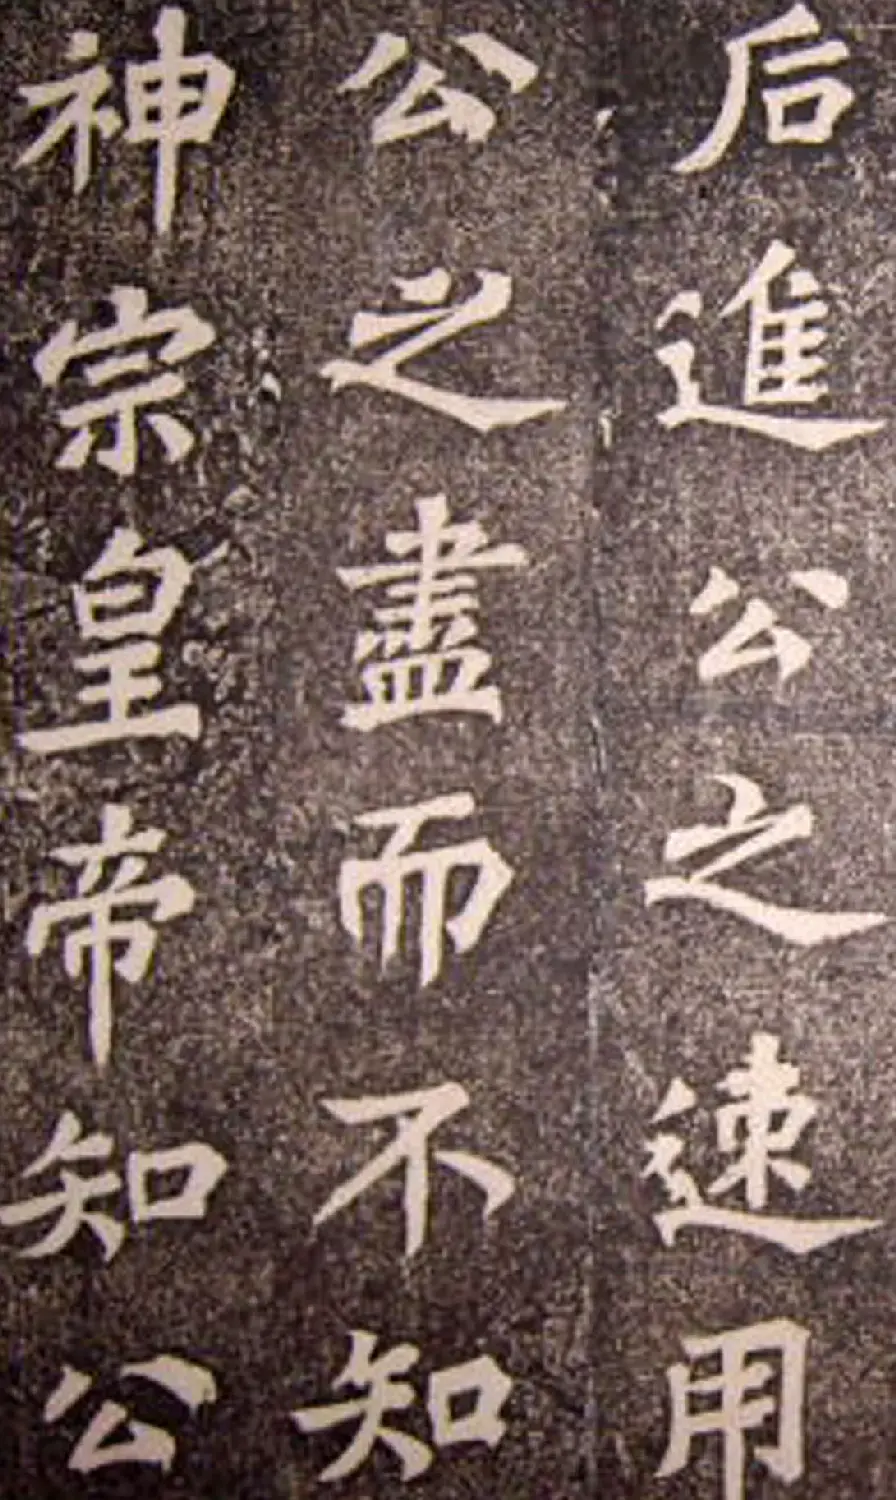 后進公之速用
公之盡而不知
神宗皇帝知公